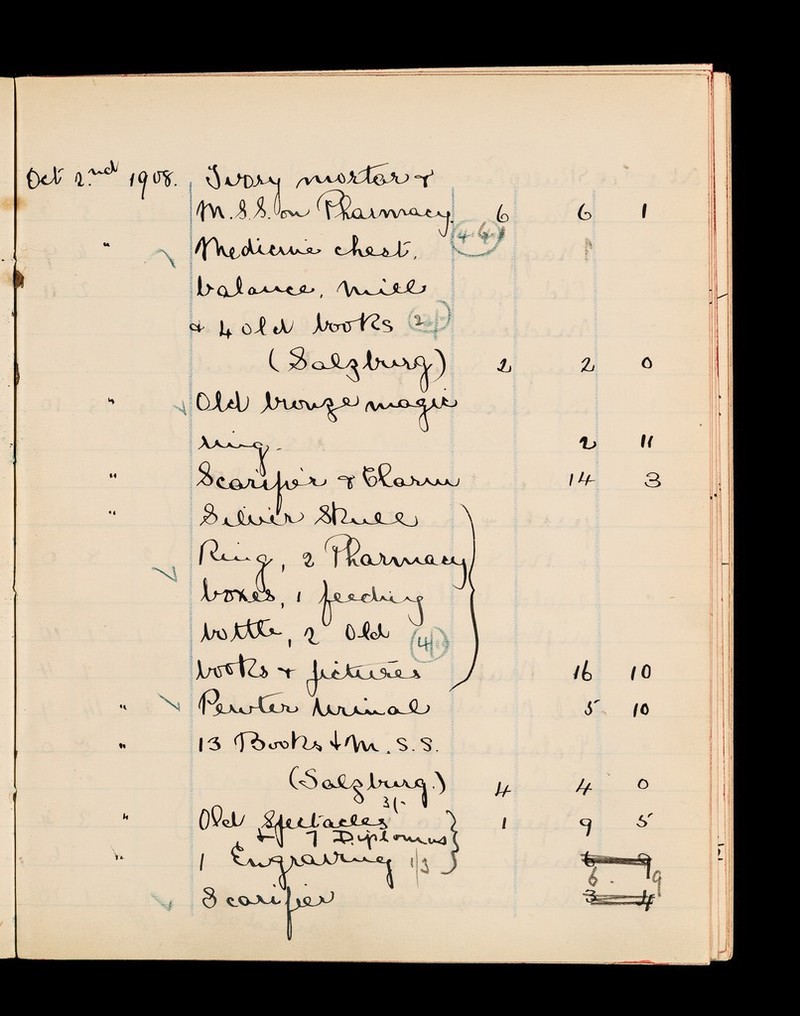 Oct 2.nd 1908. Ivory mortar &
M.S.S. on Pharmacy. 6 6 1
" Medicine chest.
balance, mill
& 4 old books
(Salzburg) 2 2 0
" Old bronze magic
ring. 2 11
" Scarifier & Charm 14 3
" Silver Skull
Ring, 2 Pharmacy
boxes, 1 feeding
bottle, 2 Old
books & pictures 16 10
" Pewter Urinal 5 10
" 13 Books & M.S.S.
(Salzburg.) 4 4 0
3/-
" Old Spectacles 1 9 5
& 7 Diplomas
" 1 Engraving 1/3 6 9
6 . 9
Scarifier 3 4